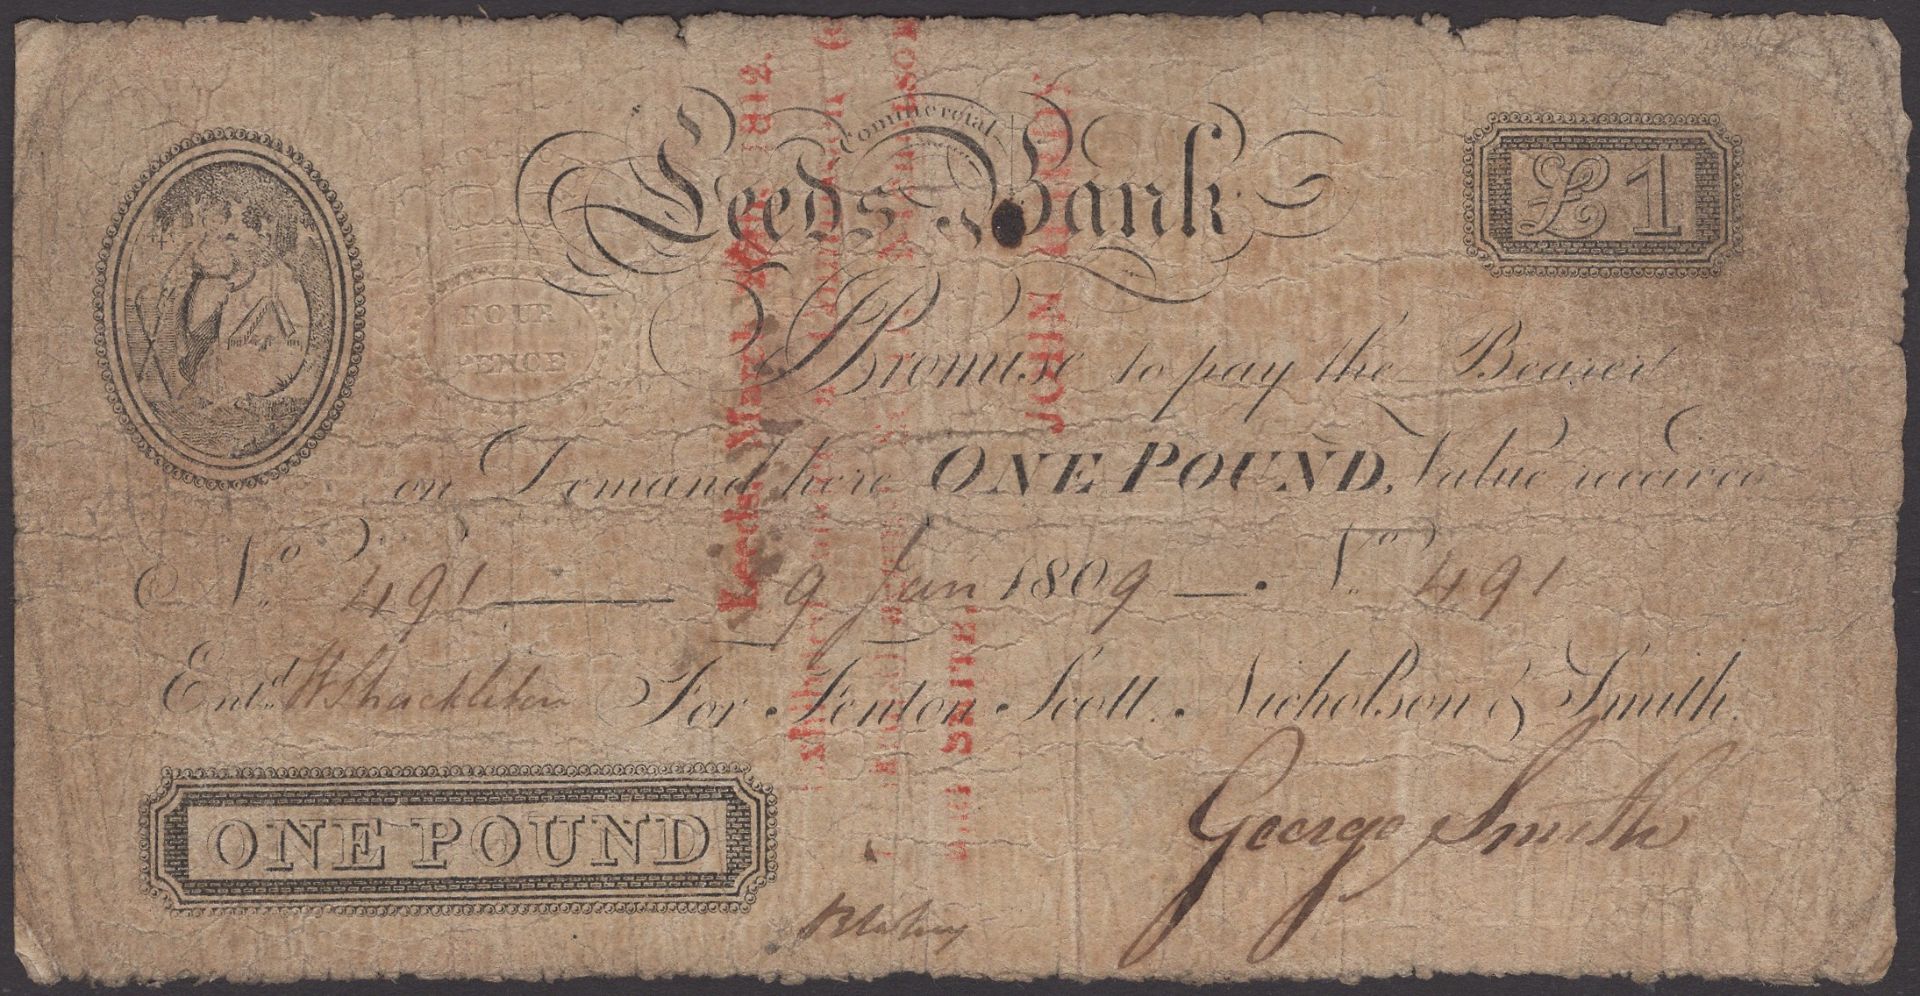 Commercial
Leeds Bank
£1
FOUR
PENCE
I Promise to pay the Bearer
on Demand here ONE POUND, Value received
No. 491 9 Jan 1809 No. 491
Entd. W Shackleton For Fenton Scott. Nicholson & Smith.
ONE POUND
George Smith
Leeds, March 1812.
JOHN